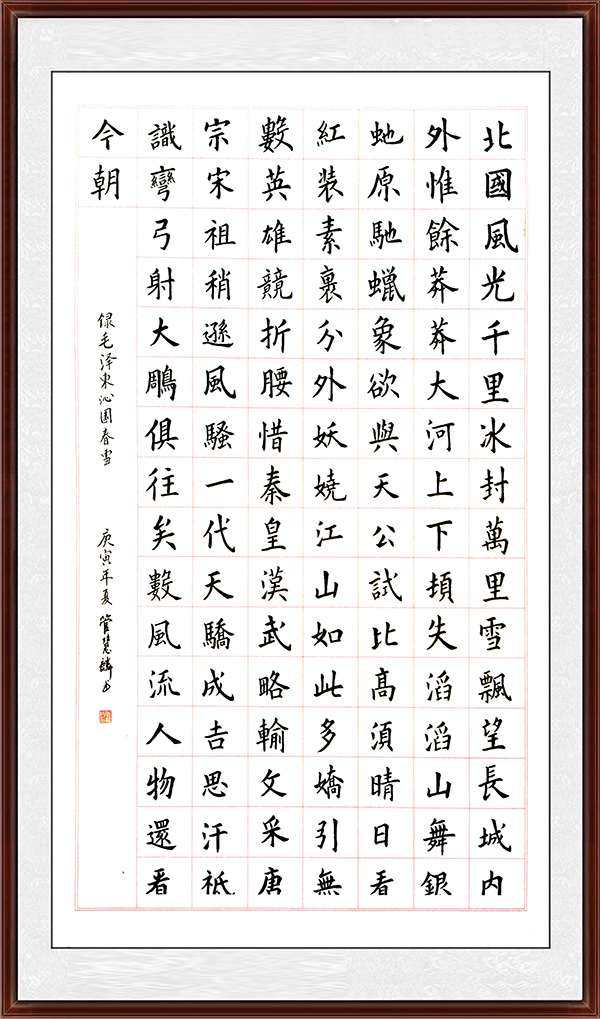 北國風光千里冰封萬里雪飄望長城内
外惟餘莽莽大河上下頓失滔滔山舞銀
虵原馳蠟象欲與天公試比高須晴日看
紅装素裹分外妖嬈江山如此多嬌引無
數英雄競折腰惜秦皇漢武略輸文采唐
宗宋祖稍遜風騷一代天驕成吉思汗祇
識彎弓射大鵰俱往矣數風流人物還看
今朝
録毛泽東沁园春雪
庚寅年夏管慧麟书